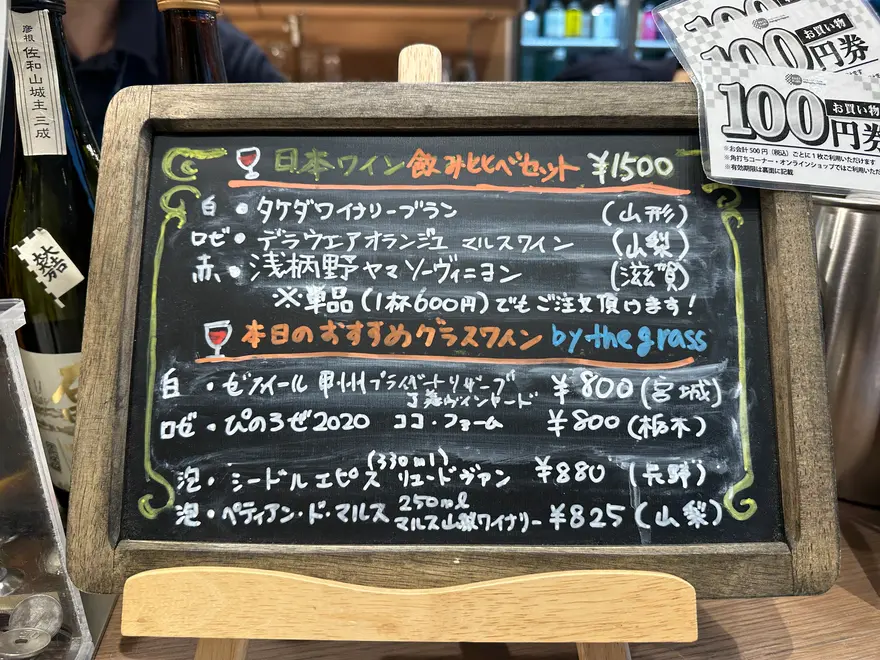 彦根 佐和山城主 三成
100
お買い物
100円券
お買い物
100円券
※お会計500円（税込）ごとに1枚ご利用いただけます
※角打ちコーナー・オンラインショップではご利用いただ
※有効期限は裏面に記載
日本ワイン飲みくらべセット ¥1500
白・タケダワイナリーブラン (山形)
ロゼ・デラウエアオランジュ マルスワイン (山梨)
赤・浅柄野ヤマソーヴィニヨン (滋賀)
※単品(1杯600円)でもご注文頂けます!
本日のおすすめグラスワイン by the grass
白・ゼフィール 甲州プライベートリザーブ ¥800(宮城)
ロゼ・ぴのろぜ2020 ココ・ファーム ¥800(栃木)
(330ml)
泡・シードルエピス リュードヴァン ¥880 (長野)
250ml
泡・ペティアン・ド・マルス マルス山梨ワイナリー ¥825(山梨)